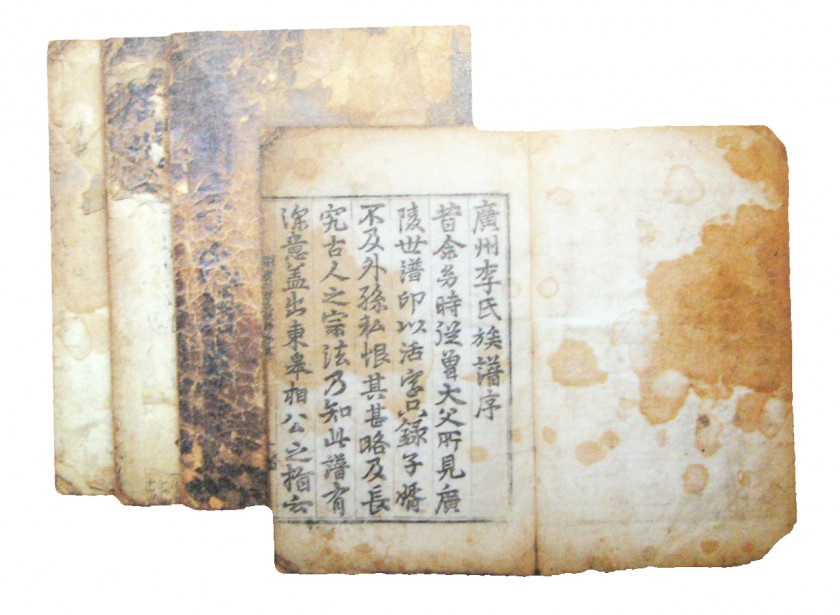 廣州李氏族譜序
昔余芳時從曾大父所見廣
陵世譜印以活字只錄子婿
不及外孫私恨其甚略及長
究古人之宗法乃知此譜有
深意盖出東皐相公之指云